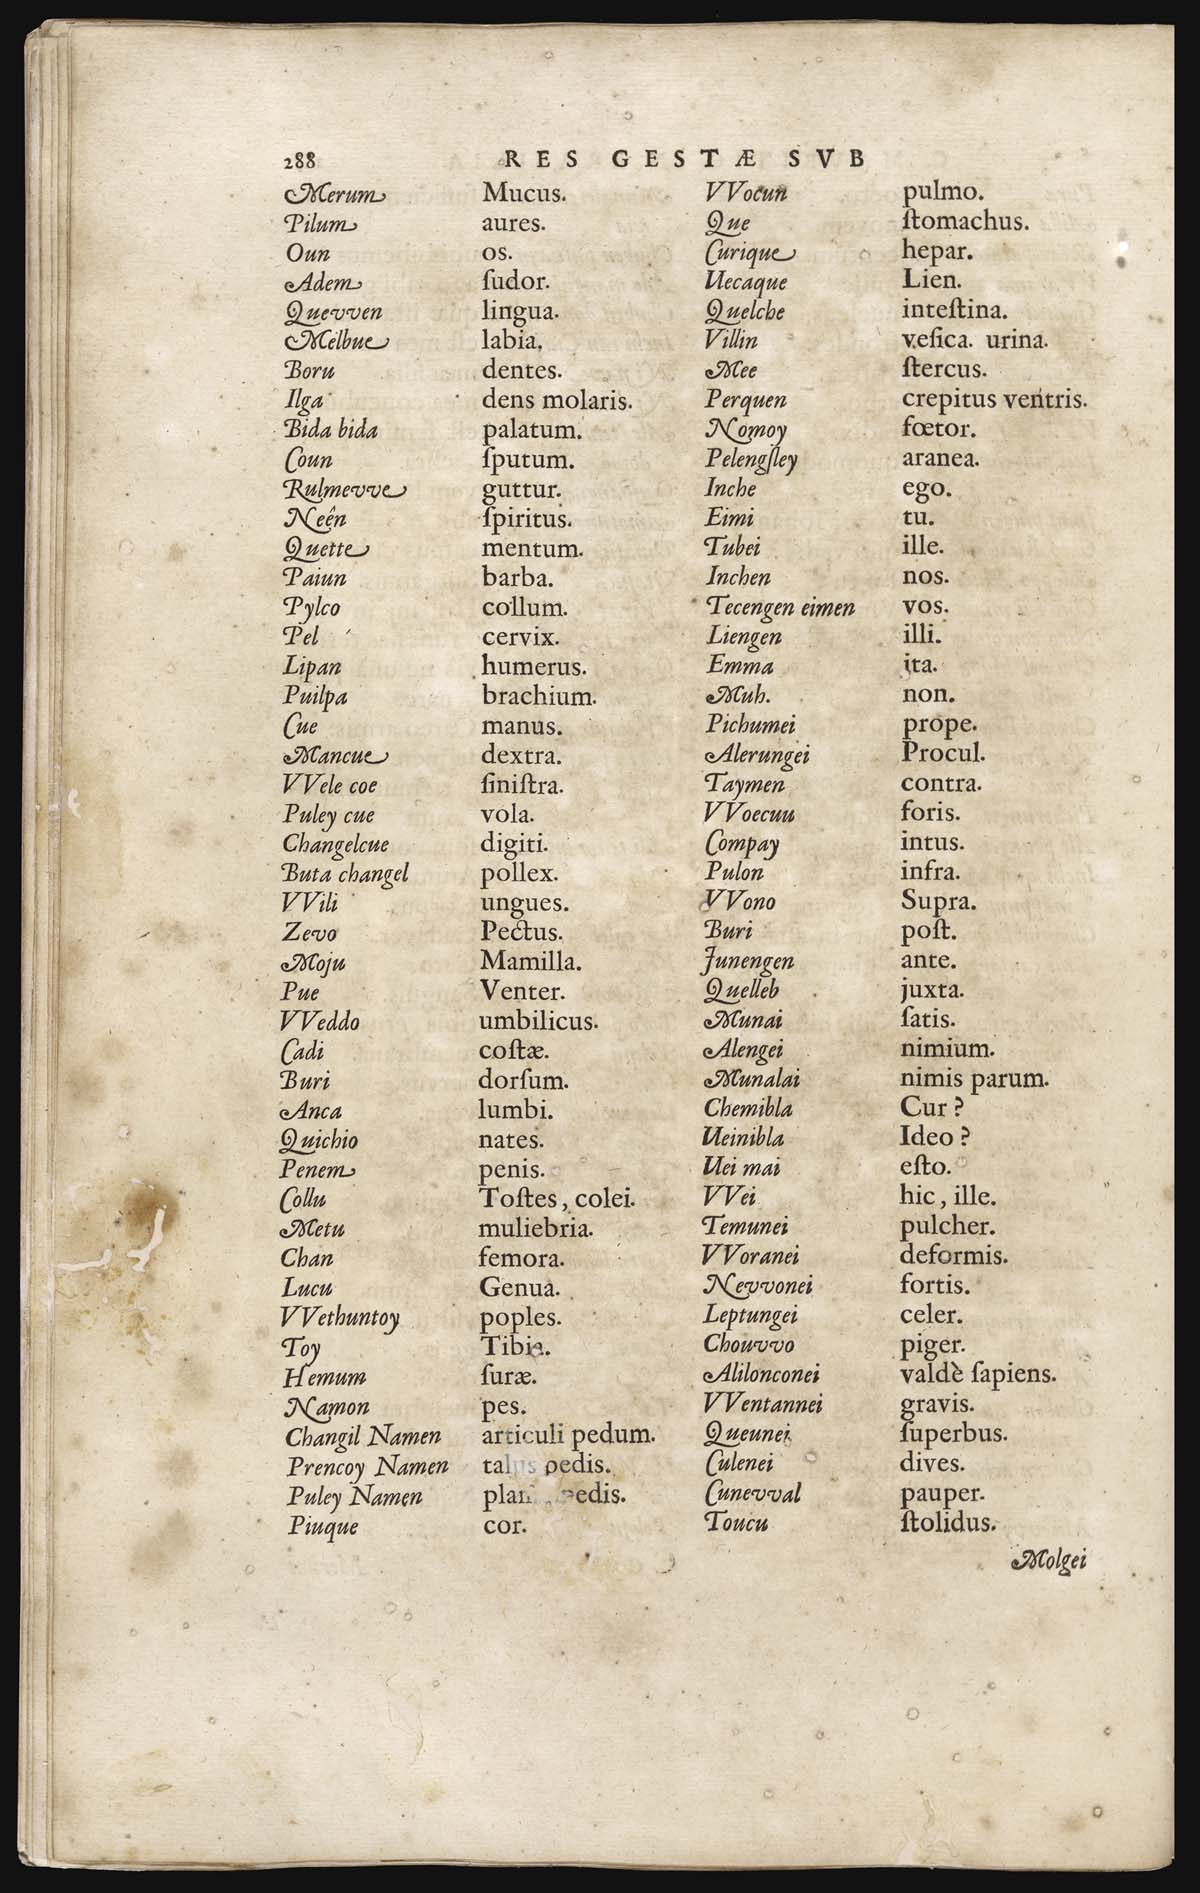 288 RES GESTÆ SVB
Merum Mucus.
Pilum aures.
Oun os.
Adem ſudor.
Quevven lingua.
Melbue labia.
Boru dentes.
Ilga dens molaris.
Bida bida palatum.
Coun ſputum.
Rulmevve guttur.
Neên ſpiritus.
Quette mentum.
Paiun barba.
Pylco collum.
Pel cervix.
Lipan humerus.
Puilpa brachium.
Cue manus.
Mancue dextra.
VVele coe ſiniſtra.
Puley cue vola.
Changelcue digiti.
Buta changel pollex.
VVili ungues.
Zevo Pectus.
Moju Mamilla.
Pue Venter.
VVeddo umbilicus.
Cadi coſtæ.
Buri dorſum.
Anca lumbi.
Quichio nates.
Penem penis.
Collu Toſtes, colei.
Metu muliebria.
Chan femora.
Lucu Genua.
VVethuntoy poples.
Toy Tibia.
Hemum ſuræ.
Namon pes.
Changil Namen articuli pedum.
Prencoy Namen talus pedis.
Puley Namen pedis.
Piuque cor.
VVocun pulmo.
Que ſtomachus.
Curique hepar.
Uecaque Lien.
Quelche inteſtina.
Villin veſica. urina.
Mee ſtercus.
Perquen crepitus ventris.
Nomoy fœtor.
Pelengſley aranea.
Inche ego.
Eimi tu.
Tubei ille.
Inchen nos.
Tecengen eimen vos.
Liengen illi.
Emma ita.
Muh. non.
Pichumei prope.
Alerungei Procul.
Taymen contra.
VVoecuu foris.
Compay intus.
Pulon infra.
VVono Supra.
Buri poſt.
Junengen ante.
Quelleb juxta.
Munai ſatis.
Alengei nimium.
Munalai nimis parum.
Chemibla Cur ?
Ueinibla Ideo ?
Uei mai eſto.
VVei hic, ille.
Temunei pulcher.
VVoranei deformis.
Nevvonei fortis.
Leptungei celer.
Chouvvo piger.
Alilonconei valdè ſapiens.
VVentannei gravis.
Queunei ſuperbus.
Culenei dives.
Cunevval pauper.
Toucu ſtolidus.
Molgei